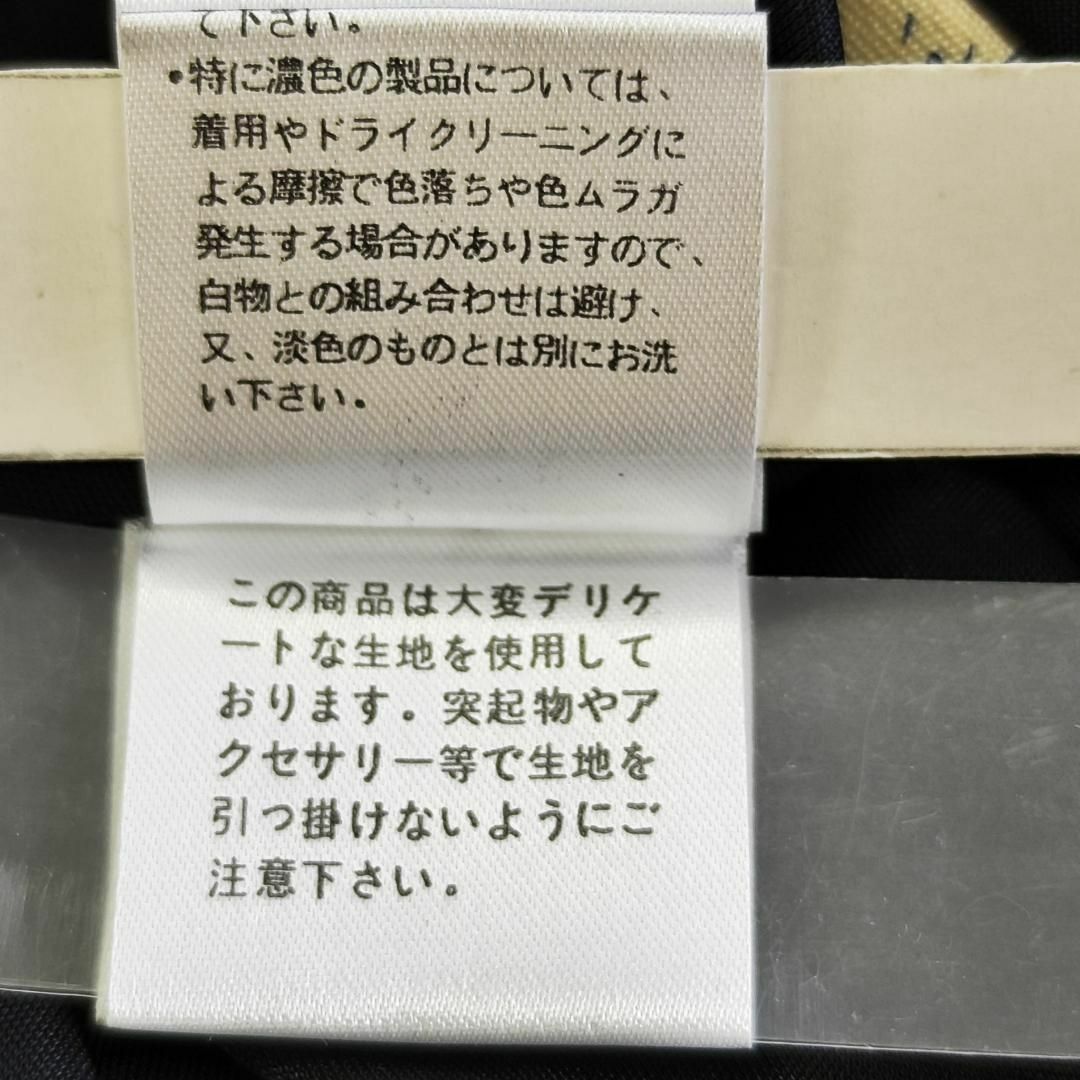 て下さい。
•特に濃色の製品については、
着用やドライクリーニングに
よる摩擦で色落ちや色ムラガ
発生する場合がありますので、
白物との組み合わせは避け、
又、淡色のものとは別にお洗
い下さい。
この商品は大変デリケ
ートな生地を使用して
おります。突起物やア
クセサリー等で生地を
引っ掛けないようにご
注意下さい。